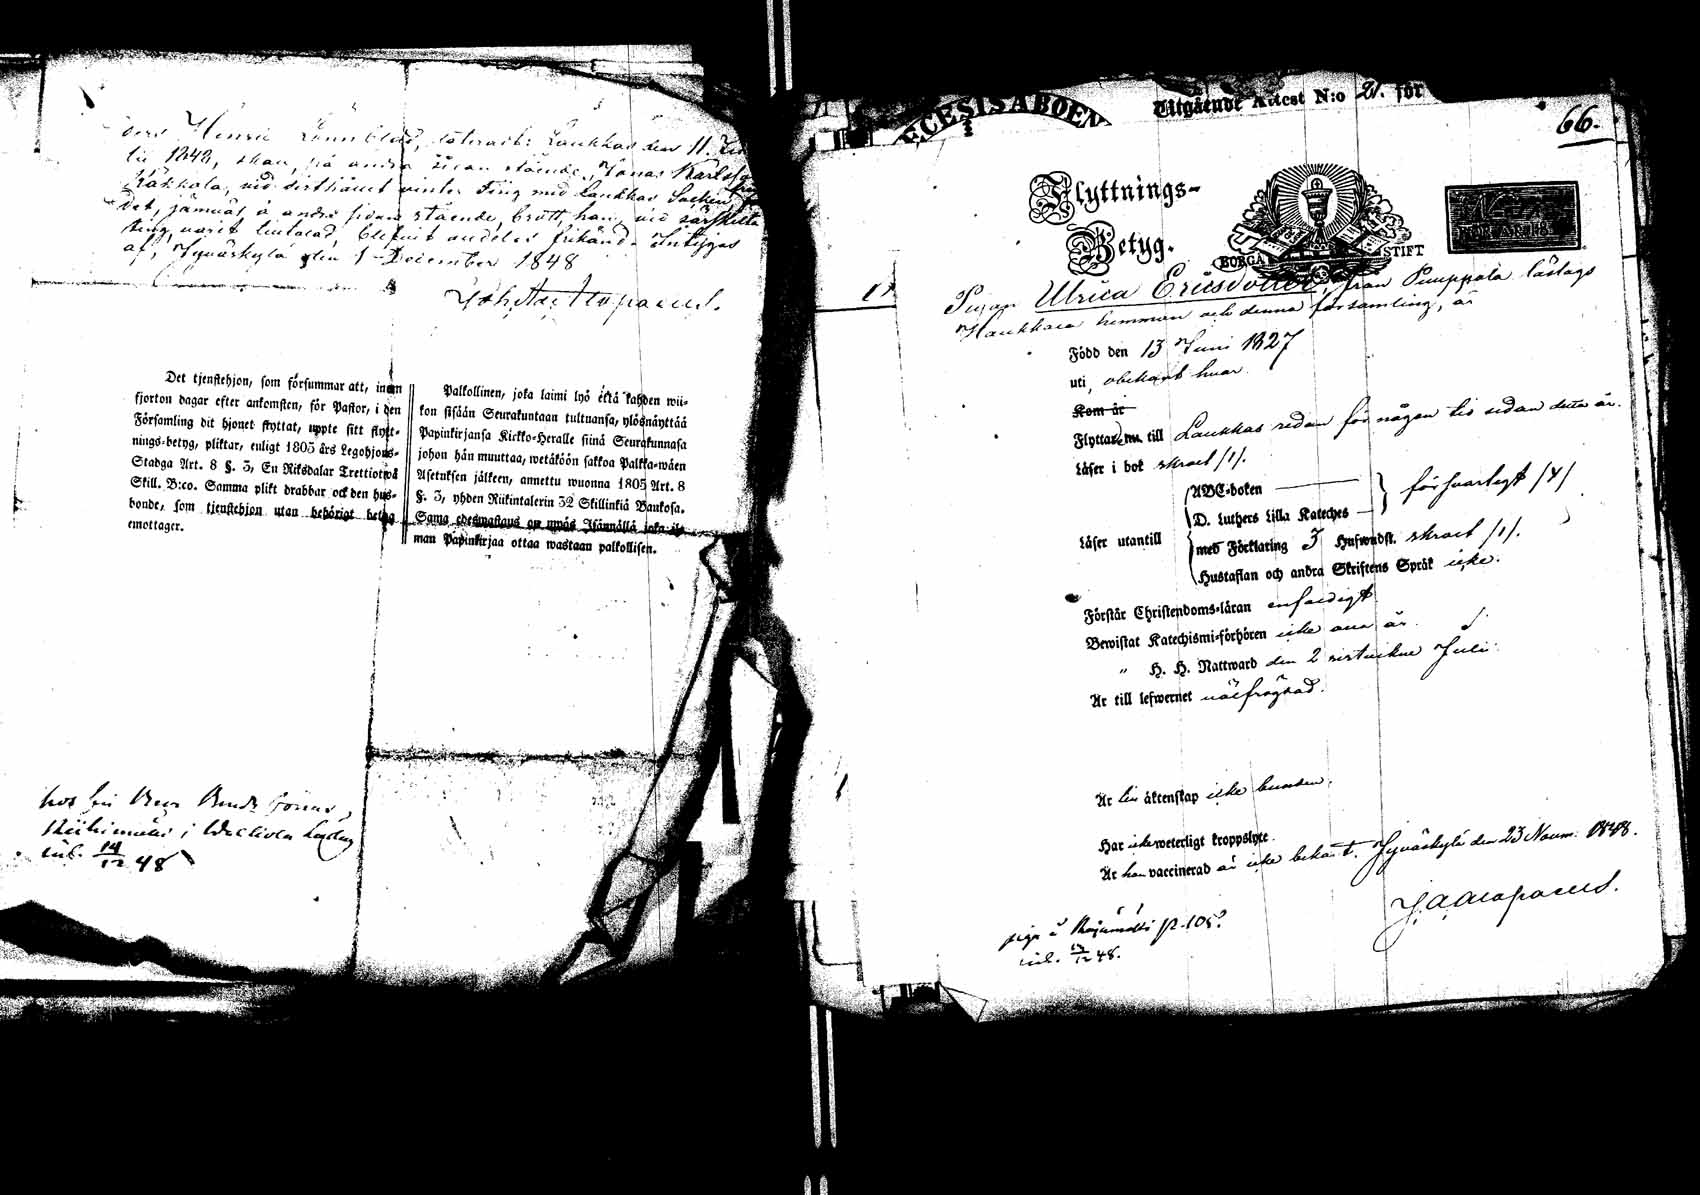 ders Henric Lönnblad, daterat: Laukkas den 11.
1848, skau, på andra sidan stående, Jonas Karlsson
Kakkola, vid sisthållet vinter Ting med Laukkas Socken
det, jämnväl å andra sidan stående, brott, han, vid särskilta
ting, varit tilltalad, blifvit andeles frikänd. Intygas
af, Jyväskylä den 1 December 1848
Det tjenstehjon, som försummar att, inom
fjorton dagar efter ankomsten, för Pastor, i den
Församling dit hjonet flyttat, uppte sitt flytt-
nings-betyg, pliktar, enligt 1805 års Legohjons-
Stadga Art. 8 §. 3, En Riksdalar Trettiotwå
Skill. B:co. Samma plikt drabbar ock den hus-
bonde, som tjenstehjon utan behörigt betyg
emottager.
Palkollinen, joka laimi lyö että kahden wii-
kon sisään Seurakuntaan tultuansa, ylösnäyttää
Papinkirjansa Kirkko-Heralle siinä Seurakunnasa
johon hän muuttaa, wetäköön sakkoa Palkka-wäen
Asetuksen jälkeen, annettu wuonna 1805 Art. 8
§. 3, yhden Riikintalerin 32 Skillinkiä Bankosa.
Sama edeswastaus on myös Isännällä joka il-
man Papinkirjaa ottaa wastaan palkollisen.
hos
i
inl. 14/12 48
ECESIS ABOEN
Utgående Attest N:o 21. för
66.
Flyttnings-
Betyg.
BORGÅ STIFT
Pigan Ulrica Ericsdotter, från Puuppola
Haukkala hemman och denna församling, är
Född den 13 Juni 1827
uti, obekant hvar.
Kom år
Flyttar nu till Laukkas redan för någon tid sedan detta år.
Läser i bok skralt /1/.
ABC-boken
D. Luthers Lilla Kateches försvarligt /4/
Läser utantill med Förklaring 3 Hufwudst. skralt /1/.
Hustaflan och andra Skriftens Språk icke.
Förstår Christendoms-läran enfaldigt
Bewistat Katechismi-förhören icke
" H. H. Nattward den 2 sistvikne Juli
Är till lefwernet välfrägdad.
Är till äktenskap icke bunden.
Har icke weterligt kroppslyte.
Är hon vaccinerad är icke bekant. Jyväskylä den 23 Novem. 1848.
piga å p. 105.
inl. 13/12 48.